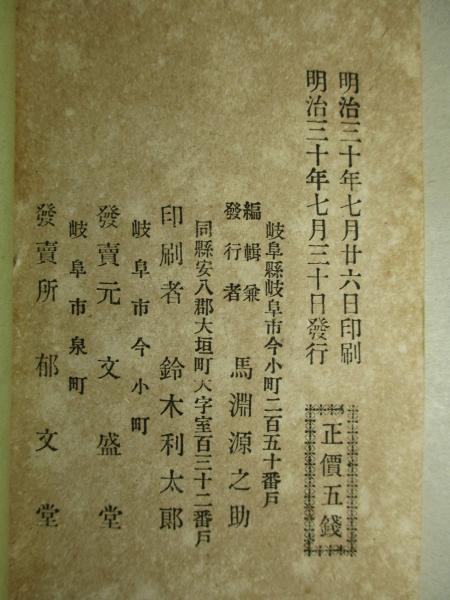 明治三十年七月廿六日印刷
明治三十年七月三十日發行
正價五錢
岐阜縣岐阜市今小町二百五十番戸
編輯兼
發行者
馬淵源之助
同縣安八郡大垣町大字室百三十二番戸
印刷者 鈴木利太郎
岐阜市今小町
發賣元 文盛堂
岐阜市泉町
發賣所 郁文堂